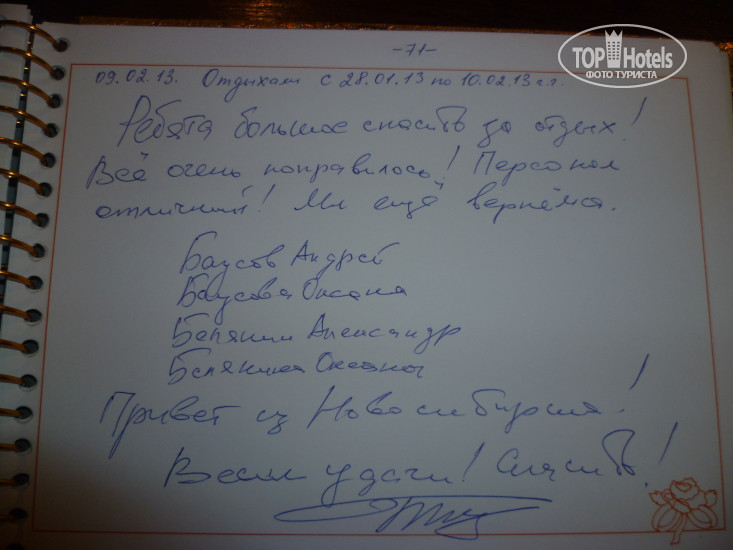 -71-
TOP Hotels
ФОТО ТУРИСТА
09.02.13. Отдыхали с 28.01.13 по 10.02.13 г.г.
Ребята большое спасибо за отдых!
Всё очень понравилось! Персонал
отличный! Мы ещё вернёмся.
Баусов Андрей
Баусова Оксана
Белянин Александр
Белянина Оксана
Привет из Новосибирска!
Всем удачи! Спасибо!